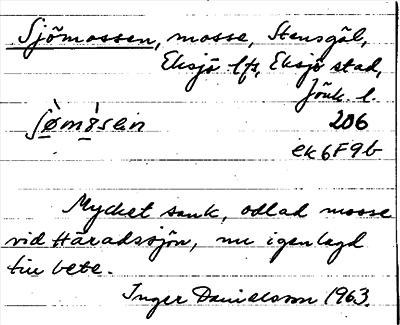 Sjömossen, mosse, Stensgöl,
Eksjö lfs, Eksjö stad,
Jönk. l.
206
ek6F9b
Mycket sank, odlad mosse
vid Häradssjön, nu igenlagd
till bete.
Inger Danielsson 1963.